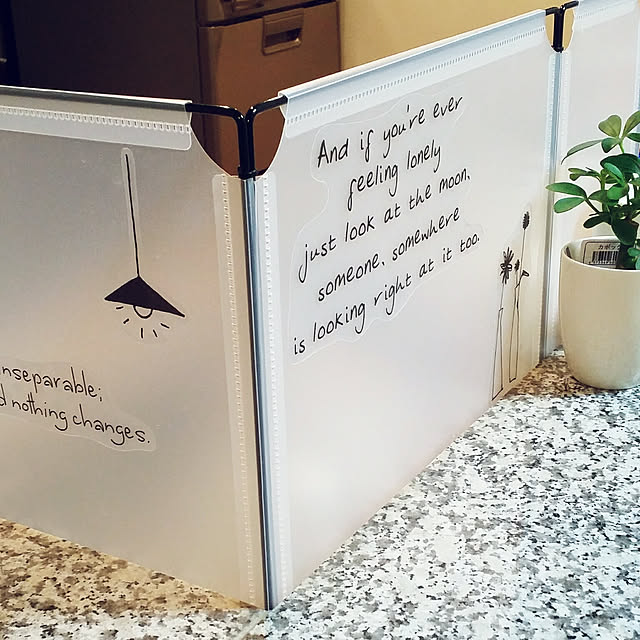 nseparable;
d nothing changes.
And if you're ever
feeling lonely
just look at the moon.
someone. somewhere
is looking right at it too.
カポック